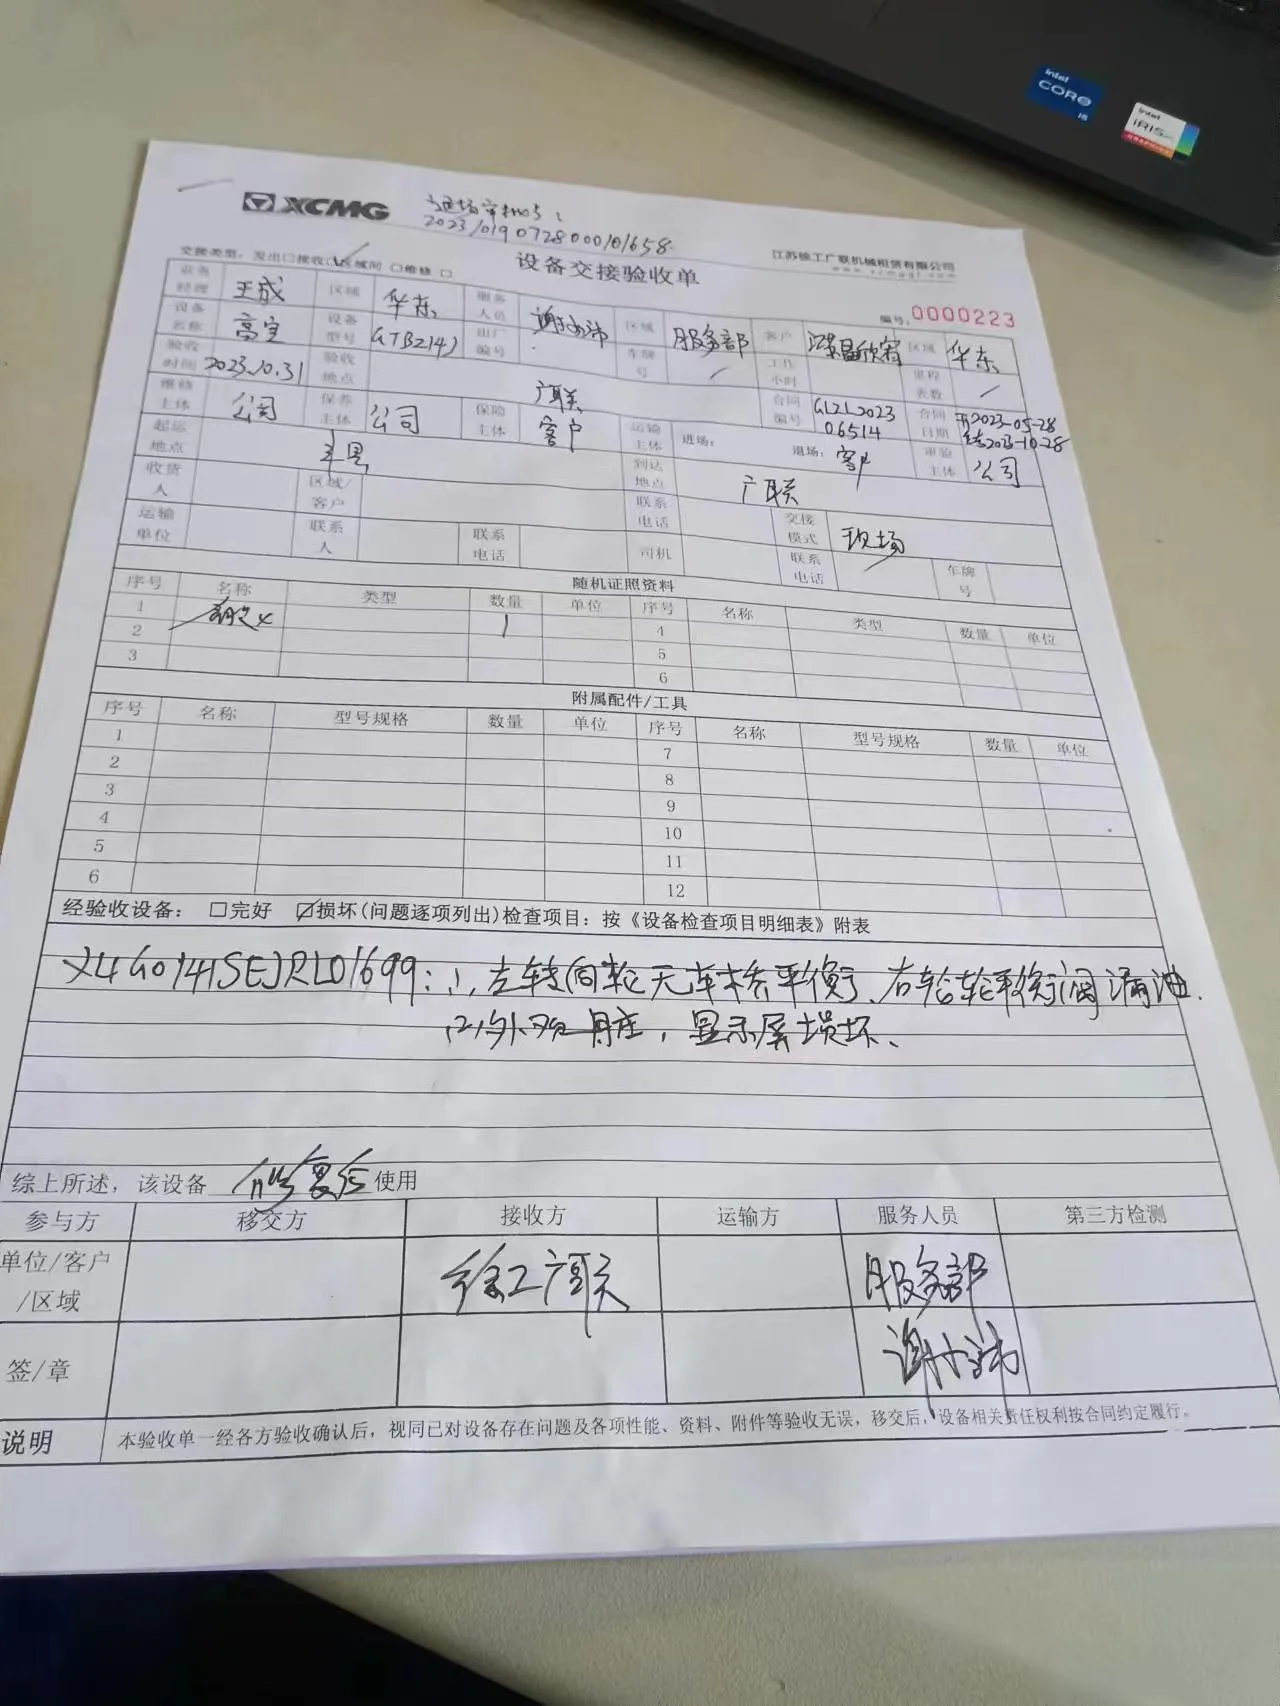 intel CORE i5
intel iRIS
XCMG
退场审批号:
202310190728000101658
江苏徐工广联机械租赁有限公司
交接类型: 发出□接收☑区域间 □维修 □
设备交接验收单
编号: 0000223
业务经理 王成 区域 华东 服务人员 区域 服务部 客户 区域 华东
设备名称 高空 设备型号 GTBZ14J 出厂编号 车牌号 / 工作小时 里程表数 /
验收时间 2023.10.31 验收地点 广联 合同编号 GLZL2023 06514 合同日期 开2023-05-28 结2023-10-28
维修主体 公司 保养主体 公司 保险主体 客户 运输主体 进场: 退场: 客户 审验主体 公司
起运地点 丰县 到达地点 广联
收货人 区域/客户 联系电话 交接模式 现场
运输单位 联系人 联系电话 司机 联系电话 车牌号
随机证照资料
序号 名称 类型 数量 单位 序号 名称 类型 数量 单位
1 1 4
2 5
3 6
附属配件/工具
序号 名称 型号规格 数量 单位 序号 名称 型号规格 数量 单位
1 7
2 8
3 9
4 10
5 11
6 12
经验收设备: □完好 ☑损坏(问题逐项列出)检查项目: 按《设备检查项目明细表》附表
XUG0141SEJRL01699: (1、左转向轮无车桥平衡、右轮轮平衡阀漏油.
(2)外观脏, 显示屏损坏、
综上所述, 该设备 修复后 使用
参与方 移交方 接收方 运输方 服务人员 第三方检测
单位/客户/区域 徐工广联 服务部
签/章
说明 本验收单一经各方验收确认后, 视同已对设备存在问题及各项性能、资料、附件等验收无误, 移交后, 设备相关责任权利按合同约定履行。